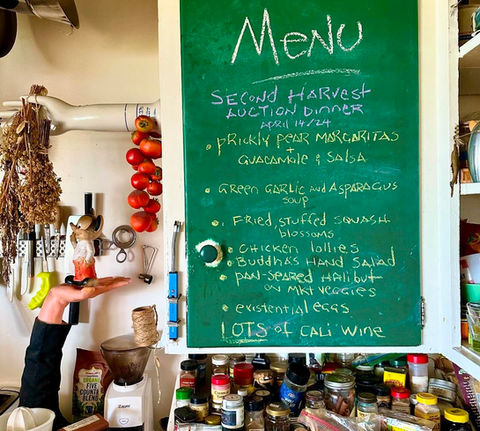 MENU
SECOND HARVEST
AUCTION DINNER
April 14/24
• PRICKLY PEAR MARGARITAS
+
GUACAMOLE & SALSA
• GREEN GARLIC AND ASPARAGUS
SOUP
• FRIED, STUFFED SQUASH
BLOSSOMS
• CHICKEN LOLLIES
• BUDDHA'S HAND SALAD
• PAN-SEARED HALIBUT
ON MKT VEGGIES
• existential eggs
LOTS of CALI WINE
ORGANIC
FIVE